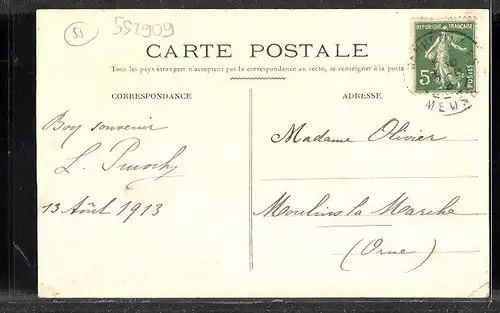 55
592909
CARTE POSTALE
Tous les pays étrangers n'acceptent pas la correspondance au recto, se renseigner à la poste
RÉPUBLIQUE FRANÇAISE
5c
POSTES
MEUSE
CORRESPONDANCE
ADRESSE
Bon souvenir
L.
13 Août 1913
Madame Olivier
Moulins la Marche
(Orne)